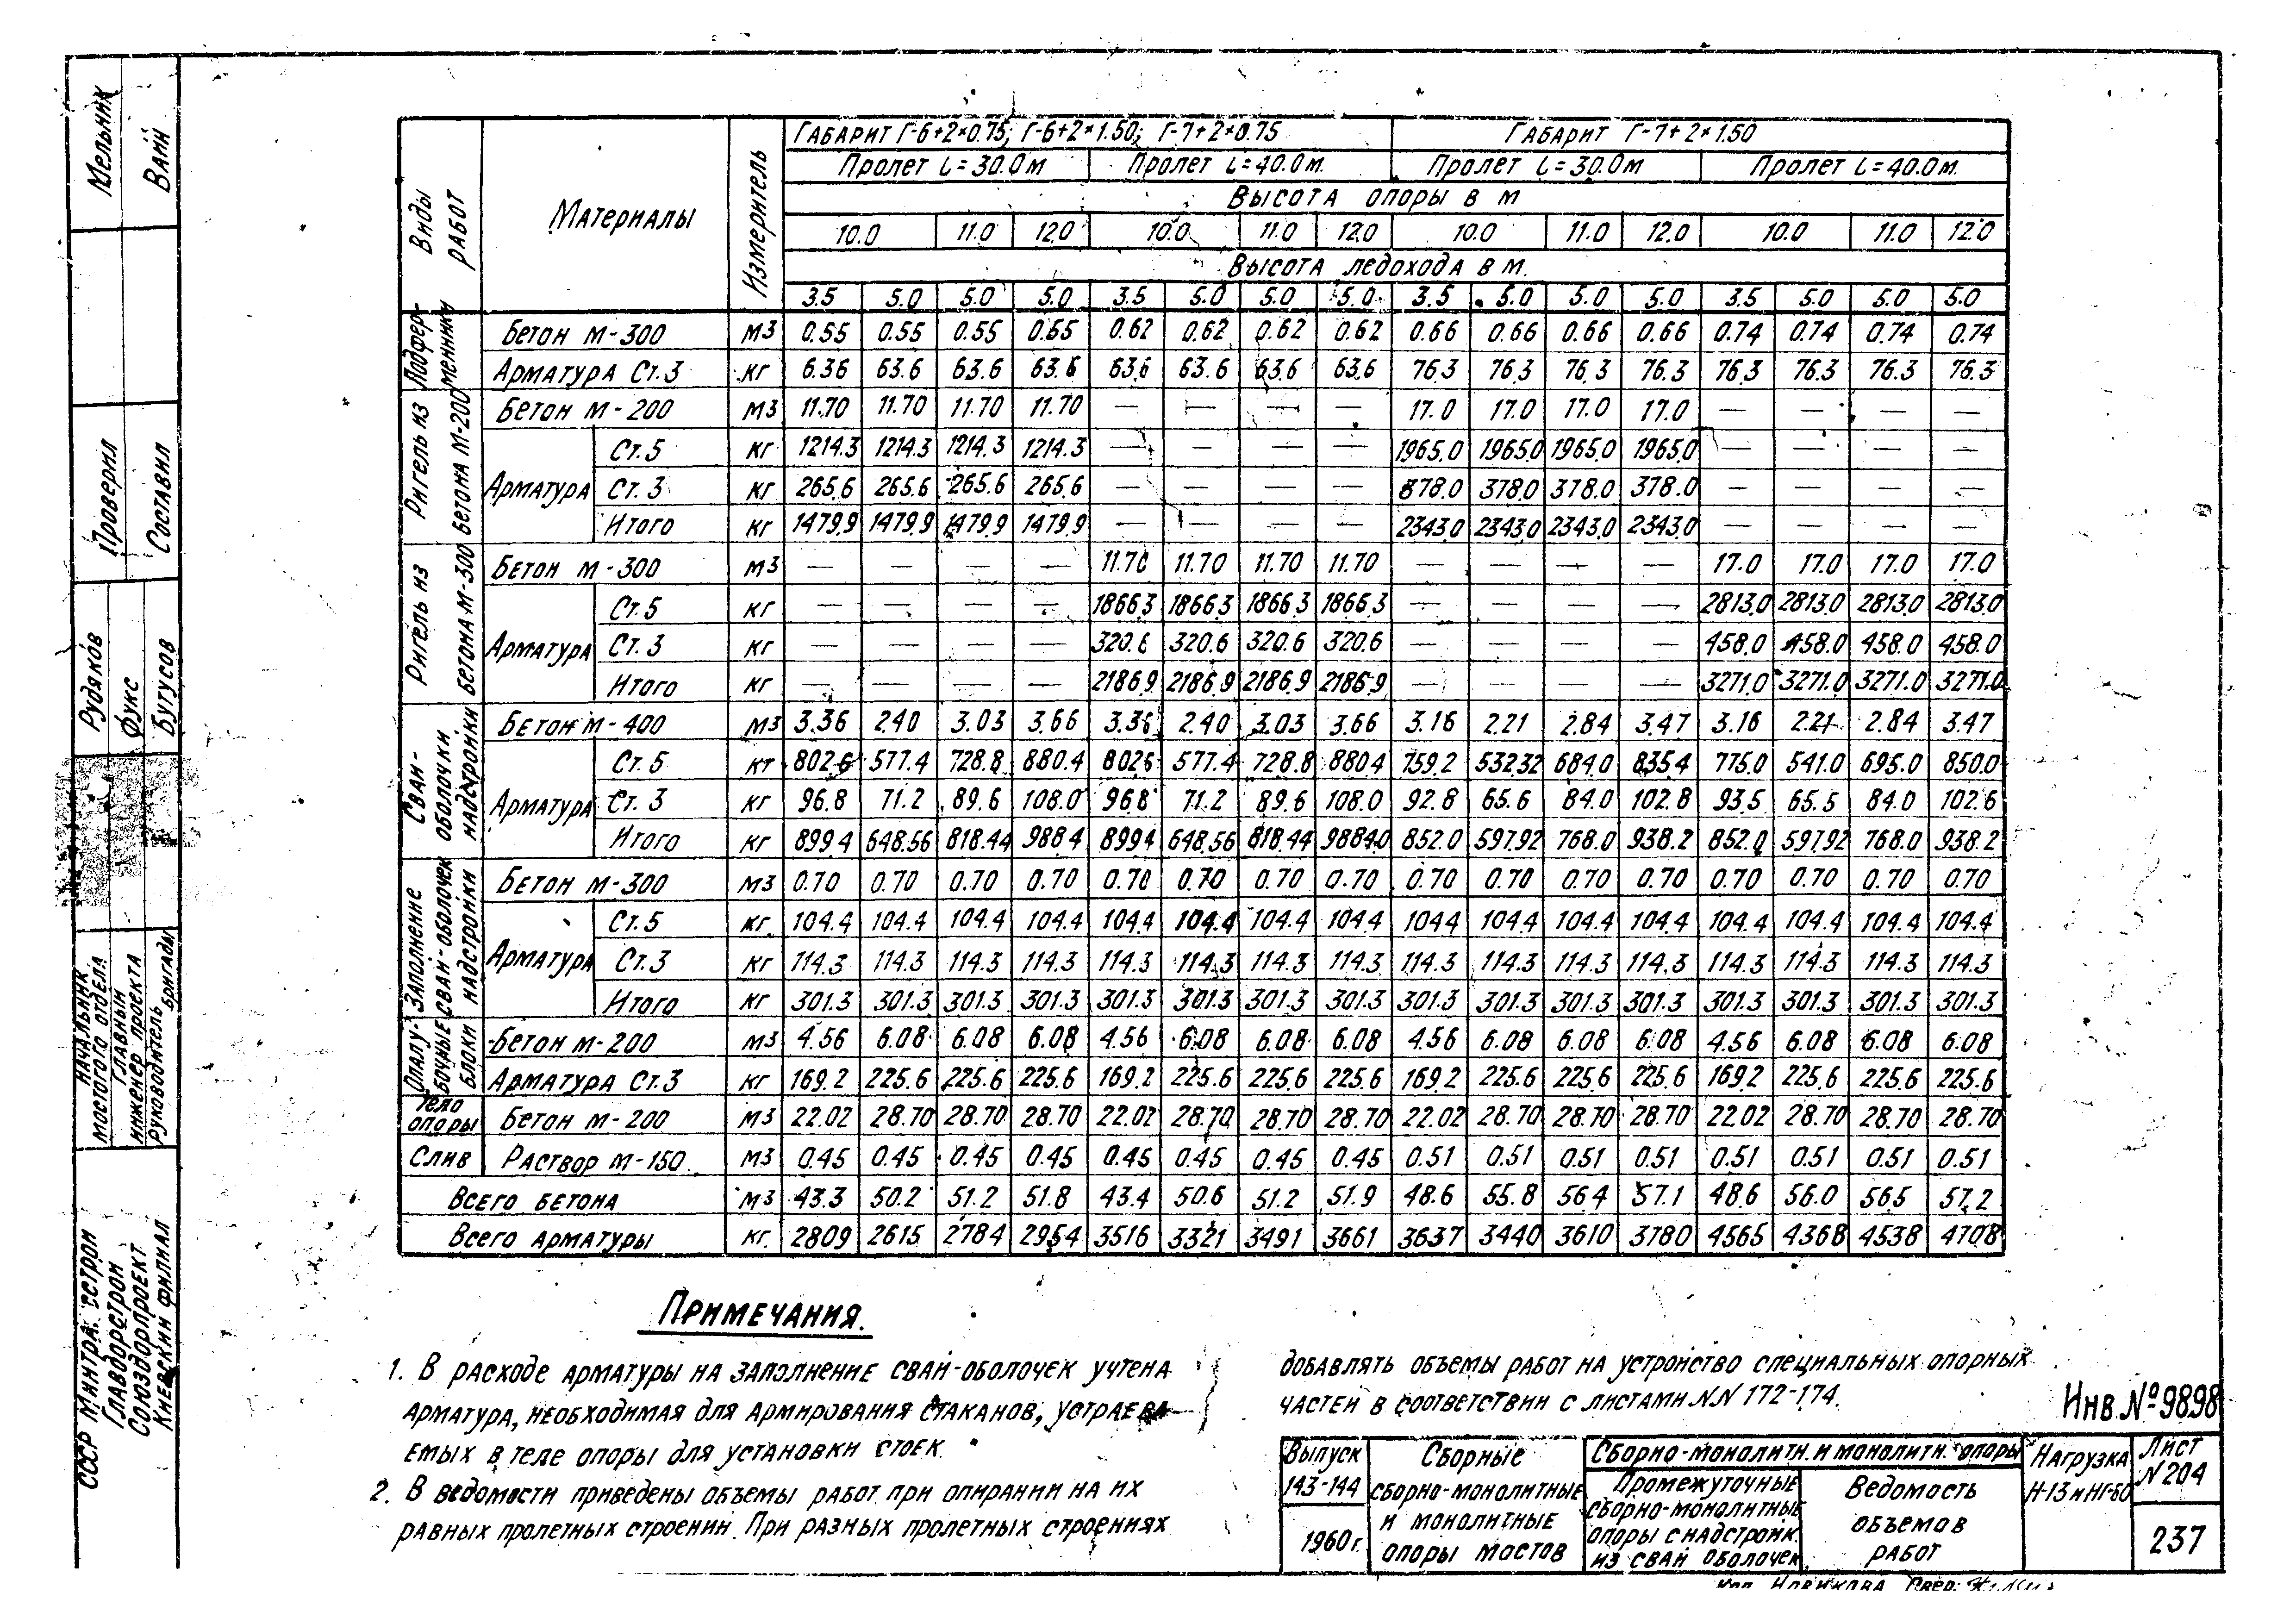 Габарит Г-6+2×0.75; Г-6+2×1.50; Г-7+2×0.75 Габарит Г-7+2×1.50
Виды работ Материалы Измеритель
Пролет L=30.0м Пролет L=40.0м. Пролет L=30.0м Пролет L=40.0м.
Высота опоры в м
10.0 11.0 12.0 10.0 11.0 12.0 10.0 11.0 12.0 10.0 11.0 12.0
Высота ледохода в м.
3.5 5.0 5.0 5.0 3.5 5.0 5.0 5.0 3.5 5.0 5.0 5.0 3.5 5.0 5.0 5.0
Подферменники
Бетон М-300 м3 0.55 0.55 0.55 0.55 0.62 0.62 0.62 0.62 0.66 0.66 0.66 0.66 0.74 0.74 0.74 0.74
Арматура Ст.3 кг 6.36 63.6 63.6 63.6 63.6 63.6 63.6 63.6 76.3 76.3 76.3 76.3 76.3 76.3 76.3 76.3
Ригель из бетона М-200
Бетон М-200 м3 11.70 11.70 11.70 11.70 — — — — 17.0 17.0 17.0 17.0 — — — —
Арматура
Ст.5 кг 1214.3 1214.3 1214.3 1214.3 — — — — 1965.0 1965.0 1965.0 1965.0 — — — —
Ст.3 кг 265.6 265.6 265.6 265.6 — — — — 378.0 378.0 378.0 378.0 — — — —
Итого кг 1479.9 1479.9 1479.9 1479.9 — — — — 2343.0 2343.0 2343.0 2343.0 — — — —
Ригель из бетона М-300
Бетон М-300 м3 — — — — 11.70 11.70 11.70 11.70 — — — — 17.0 17.0 17.0 17.0
Арматура
Ст.5 кг — — — — 1866.3 1866.3 1866.3 1866.3 — — — — 2813.0 2813.0 2813.0 2813.0
Ст.3 кг — — — — 320.6 320.6 320.6 320.6 — — — — 458.0 458.0 458.0 458.0
Итого кг — — — — 2186.9 2186.9 2186.9 2186.9 — — — — 3271.0 3271.0 3271.0 3271.0
Сваи-оболочки надстройки
Бетон М-400 м3 3.36 2.40 3.03 3.66 3.36 2.40 3.03 3.66 3.16 2.21 2.84 3.47 3.16 2.21 2.84 3.47
Арматура
Ст.5 кг 802.6 577.4 728.8 880.4 802.6 577.4 728.8 880.4 759.2 532.32 684.0 835.4 775.0 541.0 695.0 850.0
Ст.3 кг 96.8 71.2 89.6 108.0 96.8 71.2 89.6 108.0 92.8 65.6 84.0 102.8 93.5 65.5 84.0 102.6
Итого кг 899.4 648.56 818.44 988.4 899.4 648.56 818.44 9884.0 852.0 597.92 768.0 938.2 852.0 597.92 768.0 938.2
Заполнение свай-оболочек надстройки
Бетон М-300 м3 0.70 0.70 0.70 0.70 0.70 0.70 0.70 0.70 0.70 0.70 0.70 0.70 0.70 0.70 0.70 0.70
Арматура
Ст.5 кг. 104.4 104.4 104.4 104.4 104.4 104.4 104.4 104.4 104.4 104.4 104.4 104.4 104.4 104.4 104.4 104.4
Ст.3 кг 114.3 114.3 114.3 114.3 114.3 114.3 114.3 114.3 114.3 114.3 114.3 114.3 114.3 114.3 114.3 114.3
Итого кг 301.3 301.3 301.3 301.3 301.3 301.3 301.3 301.3 301.3 301.3 301.3 301.3 301.3 301.3 301.3 301.3
Опалубочные блоки
Бетон М-200 м3 4.56 6.08 6.08 6.08 4.56 6.08 6.08 6.08 4.56 6.08 6.08 6.08 4.56 6.08 6.08 6.08
Арматура Ст.3 кг 169.2 225.6 225.6 225.6 169.2 225.6 225.6 225.6 169.2 225.6 225.6 225.6 169.2 225.6 225.6 225.6
Тело опоры Бетон М-200 м3 22.02 28.70 28.70 28.70 22.02 28.70 28.70 28.70 22.02 28.70 28.70 28.70 22.02 28.70 28.70 28.70
Слив Раствор М-150 м3 0.45 0.45 0.45 0.45 0.45 0.45 0.45 0.45 0.51 0.51 0.51 0.51 0.51 0.51 0.51 0.51
Всего бетона м3 43.3 50.2 51.2 51.8 43.4 50.6 51.2 51.9 48.6 55.8 56.4 57.1 48.6 56.0 56.5 57.2
Всего арматуры кг. 2809 2615 2784 2954 3516 3321 3491 3661 3637 3440 3610 3780 4565 4368 4538 4708
Примечания.
1. В расходе арматуры на заполнение свай-оболочек учтена
арматура, необходимая для армирования стаканов, устраева-
емых в теле опоры для установки стоек.
2. В ведомости приведены объемы работ при опирании на их
равных пролетных строении. При разных пролетных строениях
добавлять объемы работ на устройство специальных опорных
частей в соответствии с листами NN 172-174.
Инв. № 9898
Выпуск
143-144
1960г.
Сборные
сборно-монолитные
и монолитные
опоры мостов
Сборно-монолитн. и монолитн. опоры
Промежуточные
сборно-монолитные
опоры с надстройк.
из свай оболочек
Ведомость
объемов
работ
Нагрузка
Н-13 и НГ-60
Лист
N 204
237
Новикова
Мельник
Ваий
Проверил
Составил
Рудяков
Фукс
Бугусов
Начальник
мостового отдела
Главный
инженер проекта
Руководитель бригады
СССР
Главдорстрой
Союздорпроект
Киевский филиал